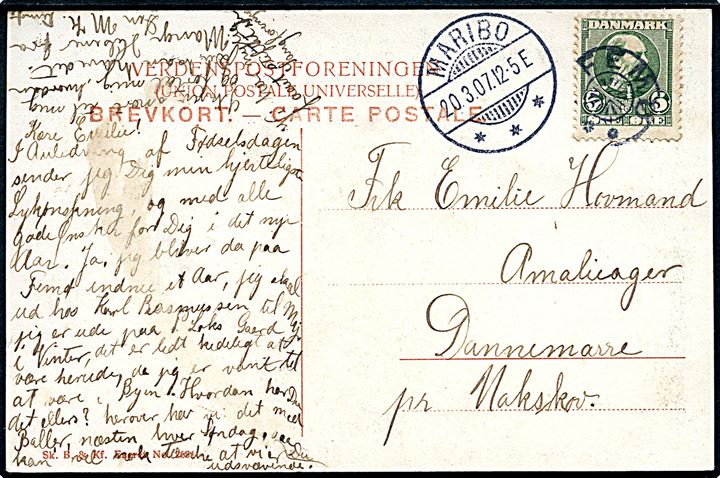 VERDENSPOSTFORENINGEN
(UNION POSTALE UNIVERSELLE)
BREVKORT. — CARTE POSTALE
MARIBO
20.3.07.12-5 E
DANMARK
5
Kære Emilie!
I Anledning af Fødselsdagen
sender jeg Dig min hjerteligste
Lykønskning, og med alle
gode Ønsker for Dig i det nye
Aar. Ja, jeg bliver da paa
Femø endnu et Aar, jeg skal
ud hos Karl Rasmussen til Maj
jeg er ude paa Gaard
i Vinter, det er lidt kedeligt at
være herude, da jeg er vant til
at være i Byen. Hvordan har Du
det ellers? herover har vi det med
Baller, næsten hver Søndag, saa Du
kan vel nok tænke at vi er
udsvævende.
Frk Emilie Hovmand
Amalieager
Dannemarre
pr Nakskov.
Sk. B. & Kf. Eneret No.